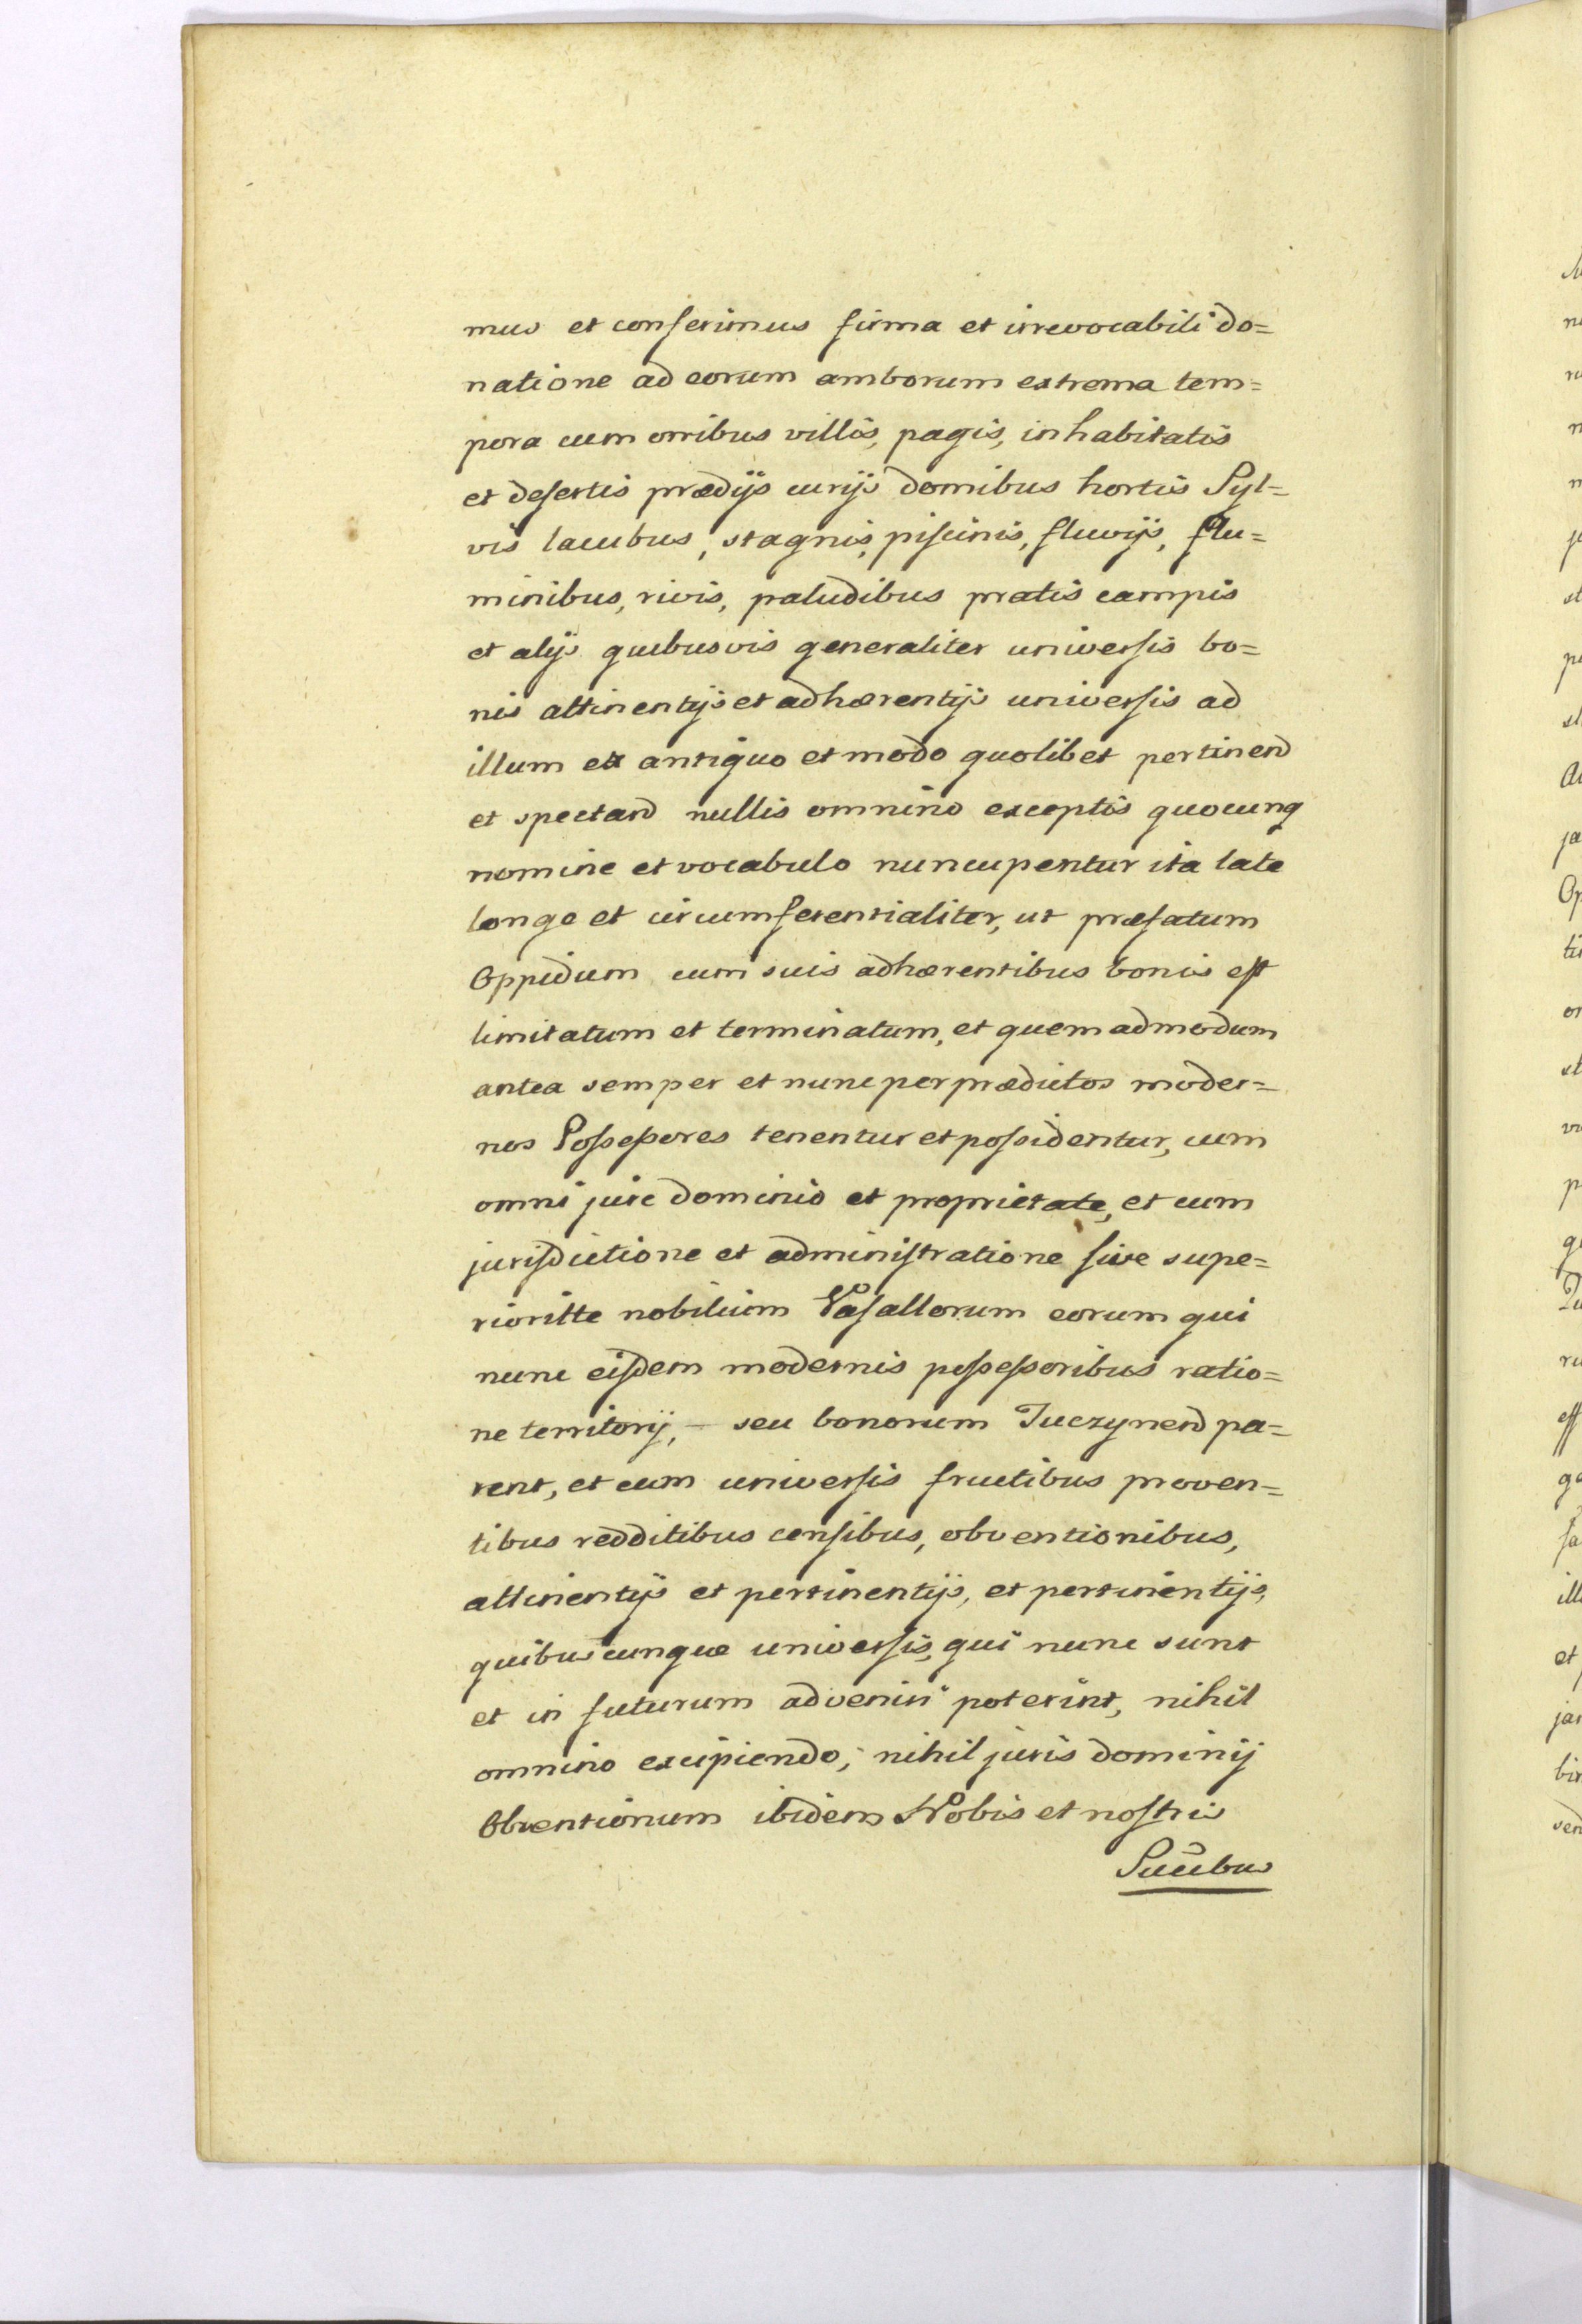 mus et conferimus firma et irrevocabili do=
natione ad eorum amborum extrema tem=
pora cum omibus villis, pagis, inhabitatis
et desertis prædijs curijs domibus hortis Syl=
vis lacubus, stagnis, piscinis, fluvijs, flu=
minibus, rivis, paludibus pratis campis
et alijs quibusvis generaliter universis bo=
nis attinentijs et adhærentijs universis ad
illum ex antiquo et modo quolibet pertinend
et spectand nullis omnino exceptis quocunq
nomine et vocabulo nuncupentur ita late
longe et circumferentialiter, ut præfatum
Oppidum cum suis adhærentibus bonis est
limitatum et terminatum, et quemadmodum
antea semper et nunc per prædictos moder=
nos Possessores tenentur et possidentur, cum
omni jure dominio et proprietate, et cum
jurisdictione et administratione sive supe=
rioritte nobilium Vasallorum eorum qui
nunc eisdem modernis possessoribus ratio=
ne territorij, – seu bonorum Tuczynen pa=
rent, et cum universis fructibus proven=
tibus redditibus censibus, obventionibus,
attinentijs et pertinentijs, et pertinentijs,
quibuscunque universis, qui nunc sunt
et in futurum adveniri poterint, nihil
omnino excipiendo, nihil juris dominij
Obventionum ibidem Nobis et nostris
Succibus